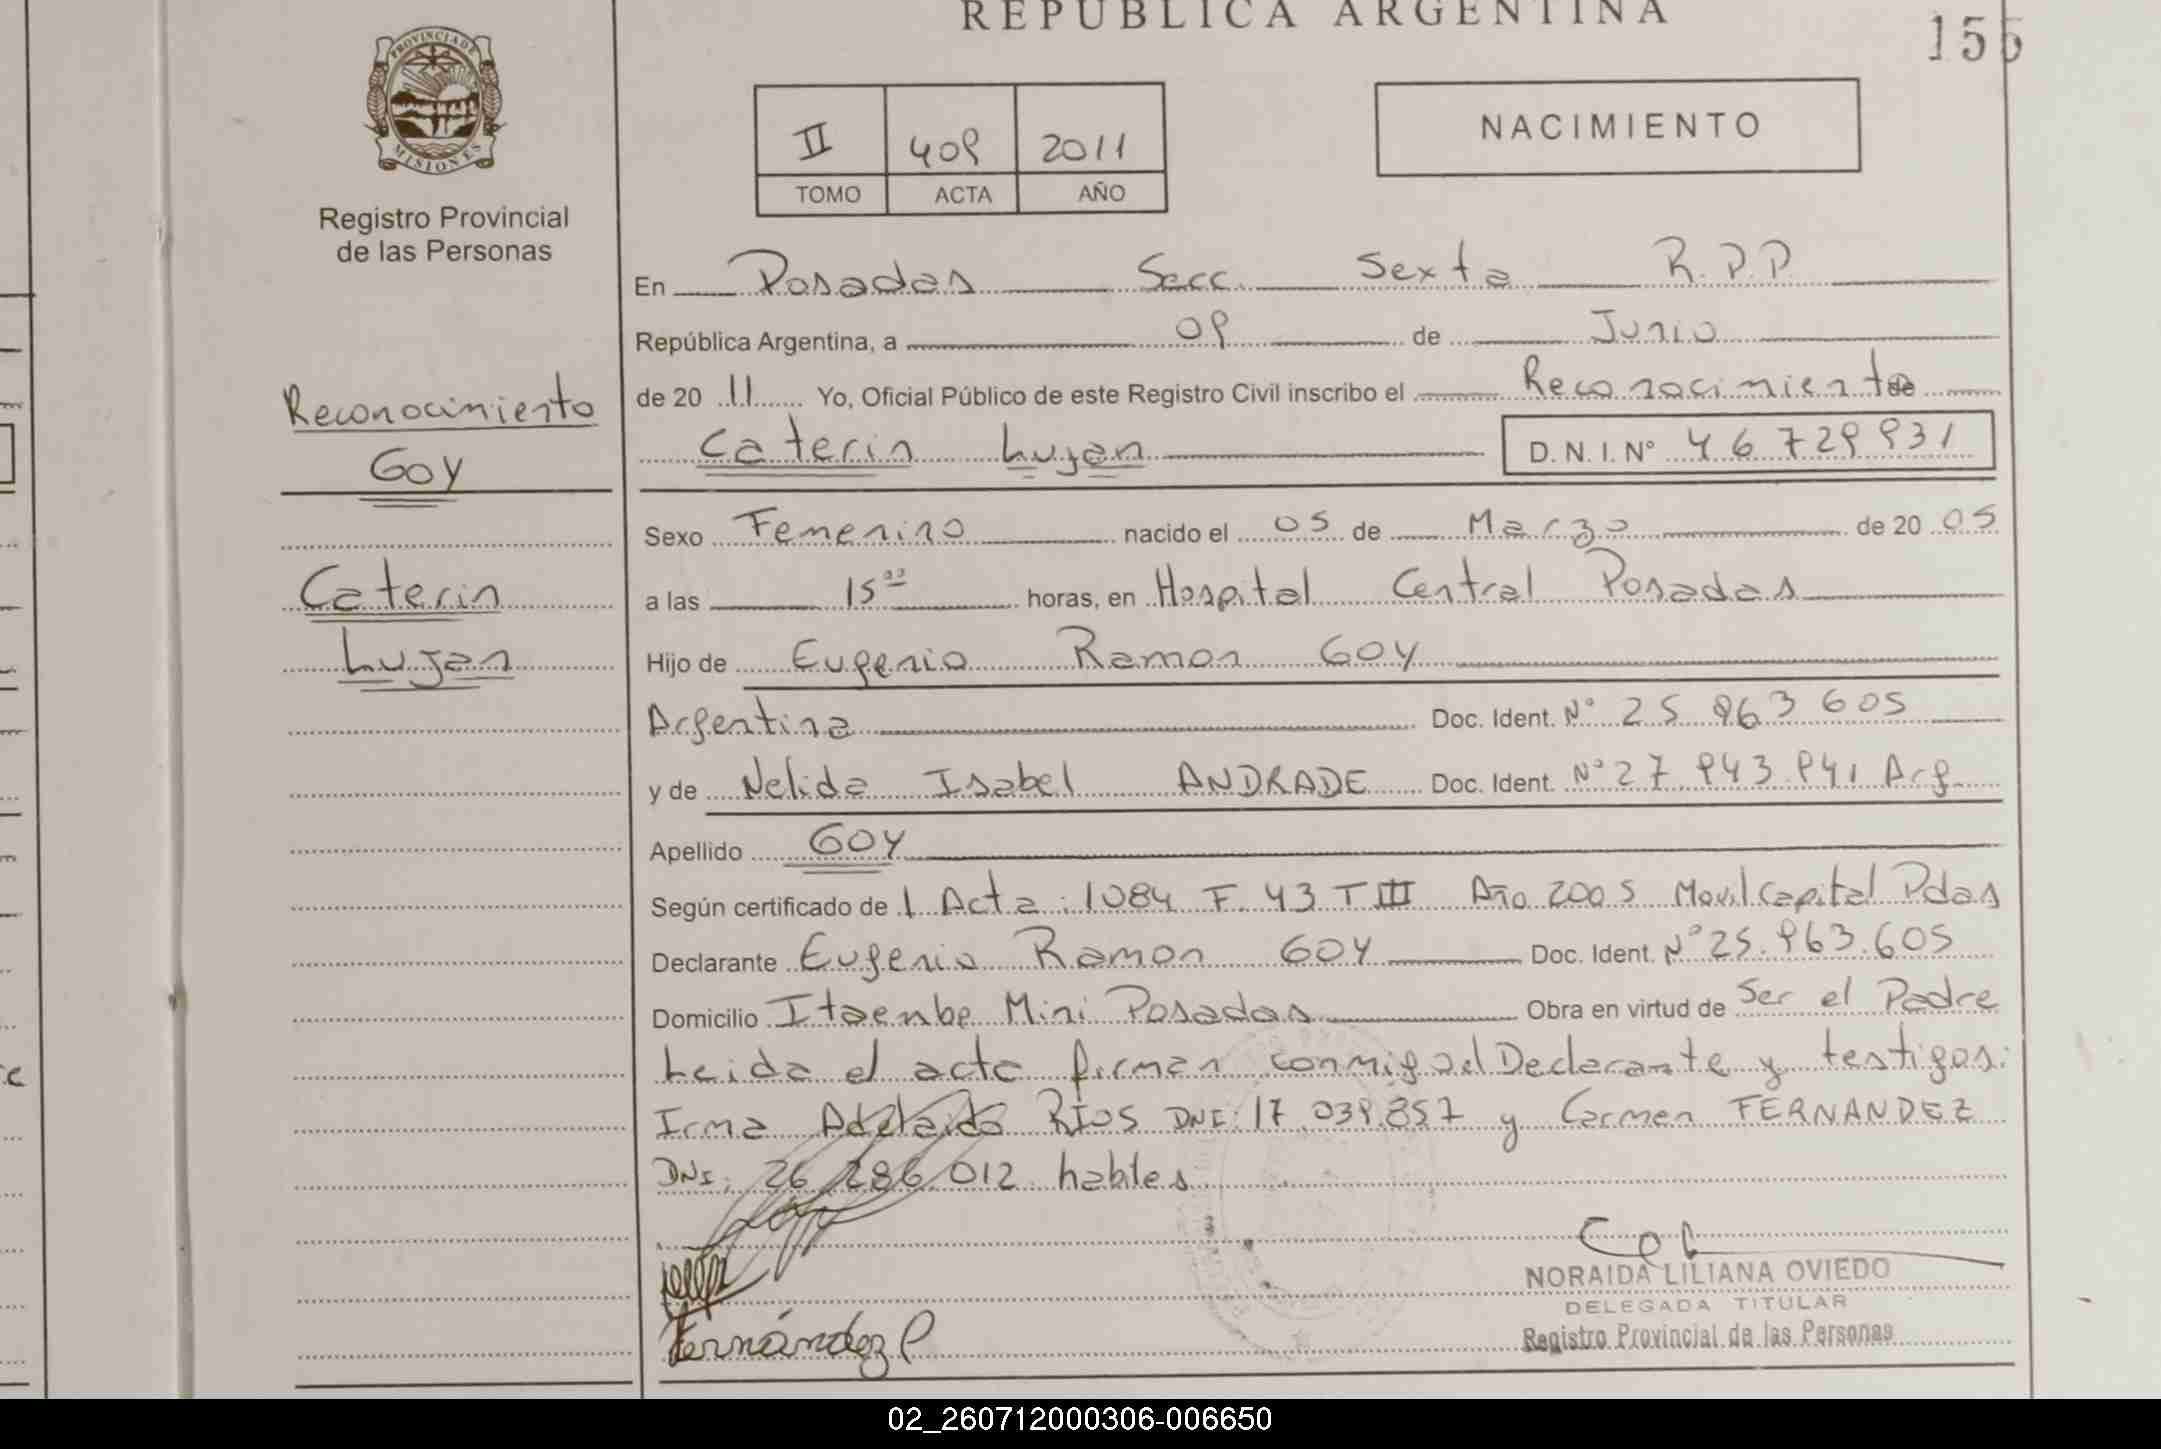 REPUBLICA ARGENTINA
155
PROVINCIA DE
MISIONES
Registro Provincial
de las Personas
II 409 2011
TOMO ACTA AÑO
NACIMIENTO
En Posadas Secc. Sexta R.P.P
República Argentina, a 09 de Junio
de 20 11 Yo, Oficial Público de este Registro Civil inscribo el Reconocimiento de
Caterin Lujan D.N.I. N° 46 729 931
Reconocimiento
GOY
Caterin
Lujan
Sexo Femenino nacido el 05 de Marzo de 20 05
a las 15 horas, en Hospital Central Posadas
Hijo de Eugenio Ramon GOY
Argentina Doc. Ident. N° 25 963 605
y de Nelida Isabel ANDRADE Doc. Ident. N° 27 943 941 Arg
Apellido GOY
Según certificado de 1 Acta: 1084 F. 43 T III Año 2005 Movil Capital Pdas
Declarante Eugenio Ramon GOY Doc. Ident. N° 25.963.605
Domicilio Itaembe Mini Posadas Obra en virtud de Ser el Padre
Leida el acta firman conmigo el Declarante y testigos:
Irma Adelaida RIOS DNI: 17.039.857 y Carmen FERNANDEZ
DNI: 26 286 012 habiles
NORAIDA LILIANA OVIEDO
DELEGADA TITULAR
Registro Provincial de las Personas
Fernández C
02_260712000306-006650